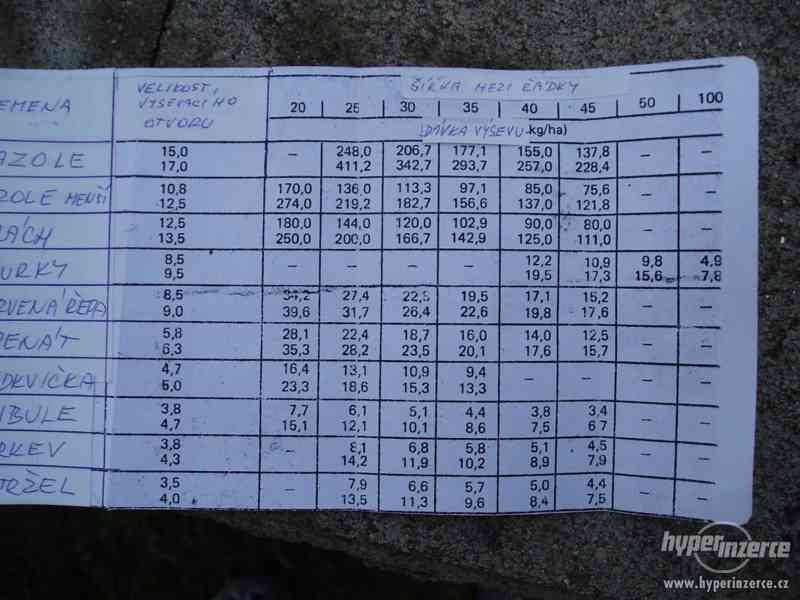 EMENA VELIKOST, VÝSEVACÍHO OTVORU ŠÍŘKA MEZI ŘÁDKY
20 25 30 35 40 45 50 100
DÁVKA VÝSEVU kg/ha)
AZOLE 15,0 – 248,0 206,7 177,1 155,0 137,8 – –
17,0 411,2 342,7 293,7 257,0 228,4
ZOLE MENŠÍ 10,8 170,0 136,0 113,3 97,1 85,0 75,6 – –
12,5 274,0 219,2 182,7 156,6 137,0 121,8
RÁCH 12,5 180,0 144,0 120,0 102,9 90,0 80,0 – –
13,5 250,0 200,0 166,7 142,9 125,0 111,0
URKY 8,5 – – – – 12,2 10,9 9,8 4,9
9,5 19,5 17,3 15,6 7,8
RVENÁ ŘEPA 8,5 34,2 27,4 22,8 19,5 17,1 15,2 – –
9,0 39,6 31,7 26,4 22,6 19,8 17,6
PENÁT 5,8 28,1 22,4 18,7 16,0 14,0 12,5 – –
6,3 35,3 28,2 23,5 20,1 17,6 15,7
DKVIČKA 4,7 16,4 13,1 10,9 9,4 – – – –
5,0 23,3 18,6 15,3 13,3
IBULE 3,8 7,7 6,1 5,1 4,4 3,8 3,4 – –
4,7 15,1 12,1 10,1 8,6 7,5 6 7
RKEV 3,8 – 8,1 6,8 5,8 5,1 4,5 – –
4,3 14,2 11,9 10,2 8,9 7,9
TRŽEL 3,5 – 7,9 6,6 5,7 5,0 4,4 – –
4,0 13,5 11,3 9,6 8,4 7,5
hyperinzerce
www.hyperinzerce.cz